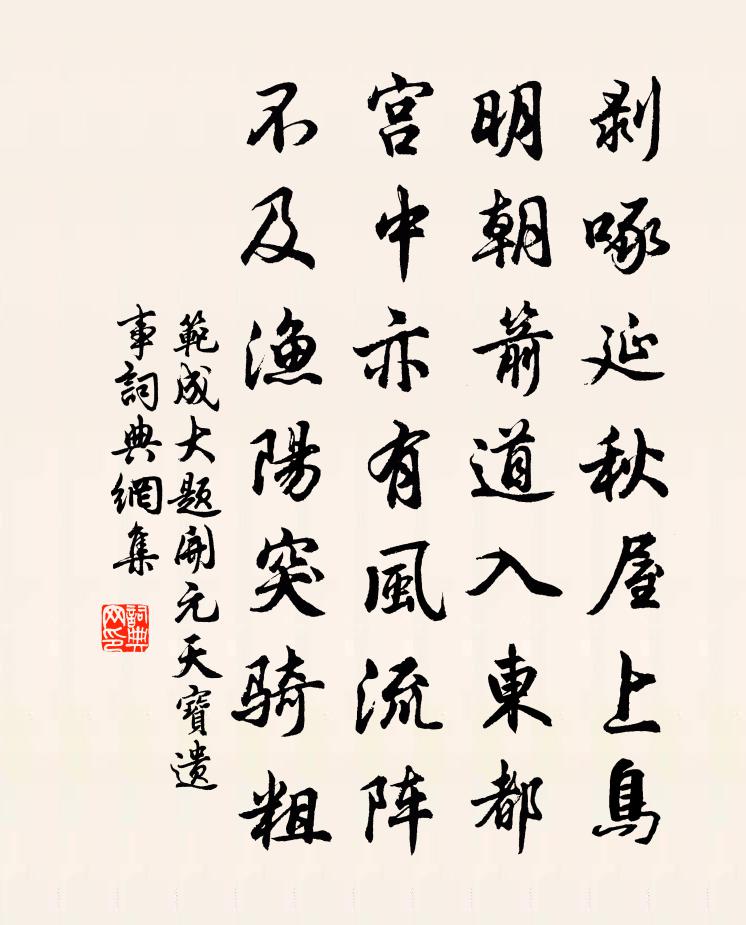 剥啄延秋屋上烏
明朝箭道入東都
宮中亦有風流阵
不及漁陽突騎粗
範成大题開元天寶遺
事詞典網集
詞典
网印